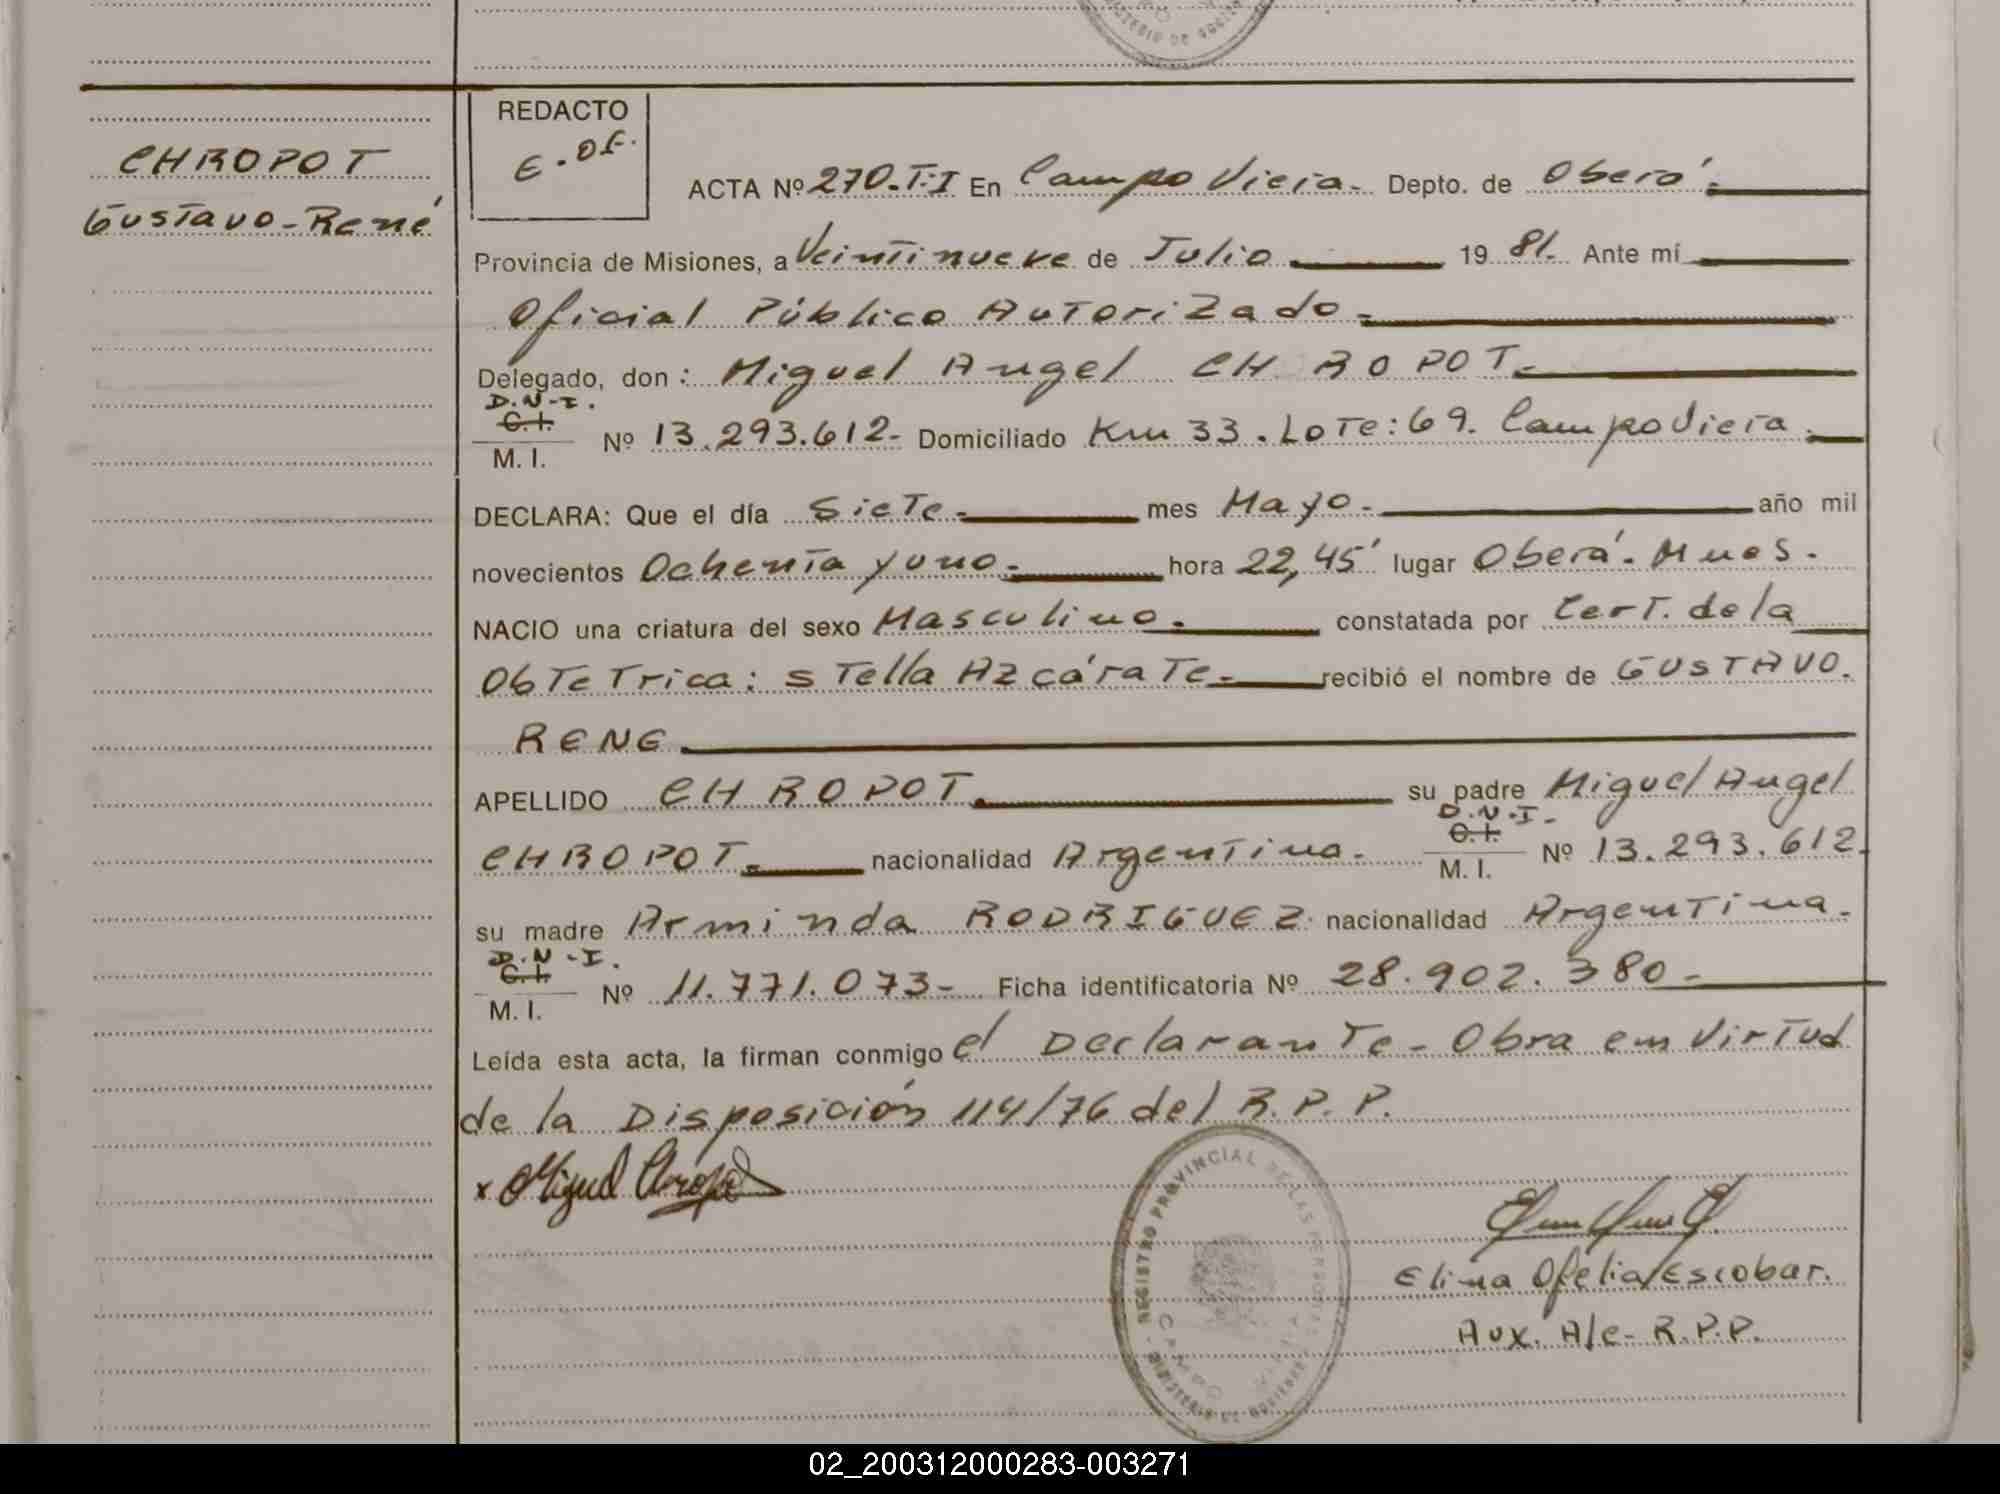 CHROPOT
Gustavo-René
REDACTO
E.Of.
ACTA Nº 270.T.I En Campo Viera. Depto. de Oberá.
Provincia de Misiones, a Veintinueve de Julio 19 81. Ante mí
Oficial Público Autorizado.
Delegado, don: Miguel Angel CHROPOT.
D.N.I.
C.I.
M. I. Nº 13.293.612- Domiciliado Km 33. Lote: 69. Campo Viera.
DECLARA: Que el día Siete. mes Mayo. año mil
novecientos Ochenta y uno. hora 22,45' lugar Oberá. Mnes.
NACIO una criatura del sexo Masculino. constatada por Cert. de la
Obtetrica: Stella Azcárate. recibió el nombre de GUSTAVO.
RENE
APELLIDO CHROPOT. su padre Miguel Angel
CHROPOT. nacionalidad Argentina. D.N.I. C.I. M. I. Nº 13.293.612.
su madre Arminda RODRIGUEZ. nacionalidad Argentina.
D.N.I.
C.I.
M. I. Nº 11.771.073- Ficha identificatoria Nº 28.902.380-
Leída esta acta, la firman conmigo el Declarante- Obra em Virtud
de la Disposición 114/76 del R.P.P.
x Miguel Chropot
REGISTRO PROVINCIAL DE LAS PERSONAS
CAMPO VIERA
MINISTERIO DE GOBIERNO
Elina Ofelia Escobar.
Aux. A/c- R.P.P.
02_200312000283-003271